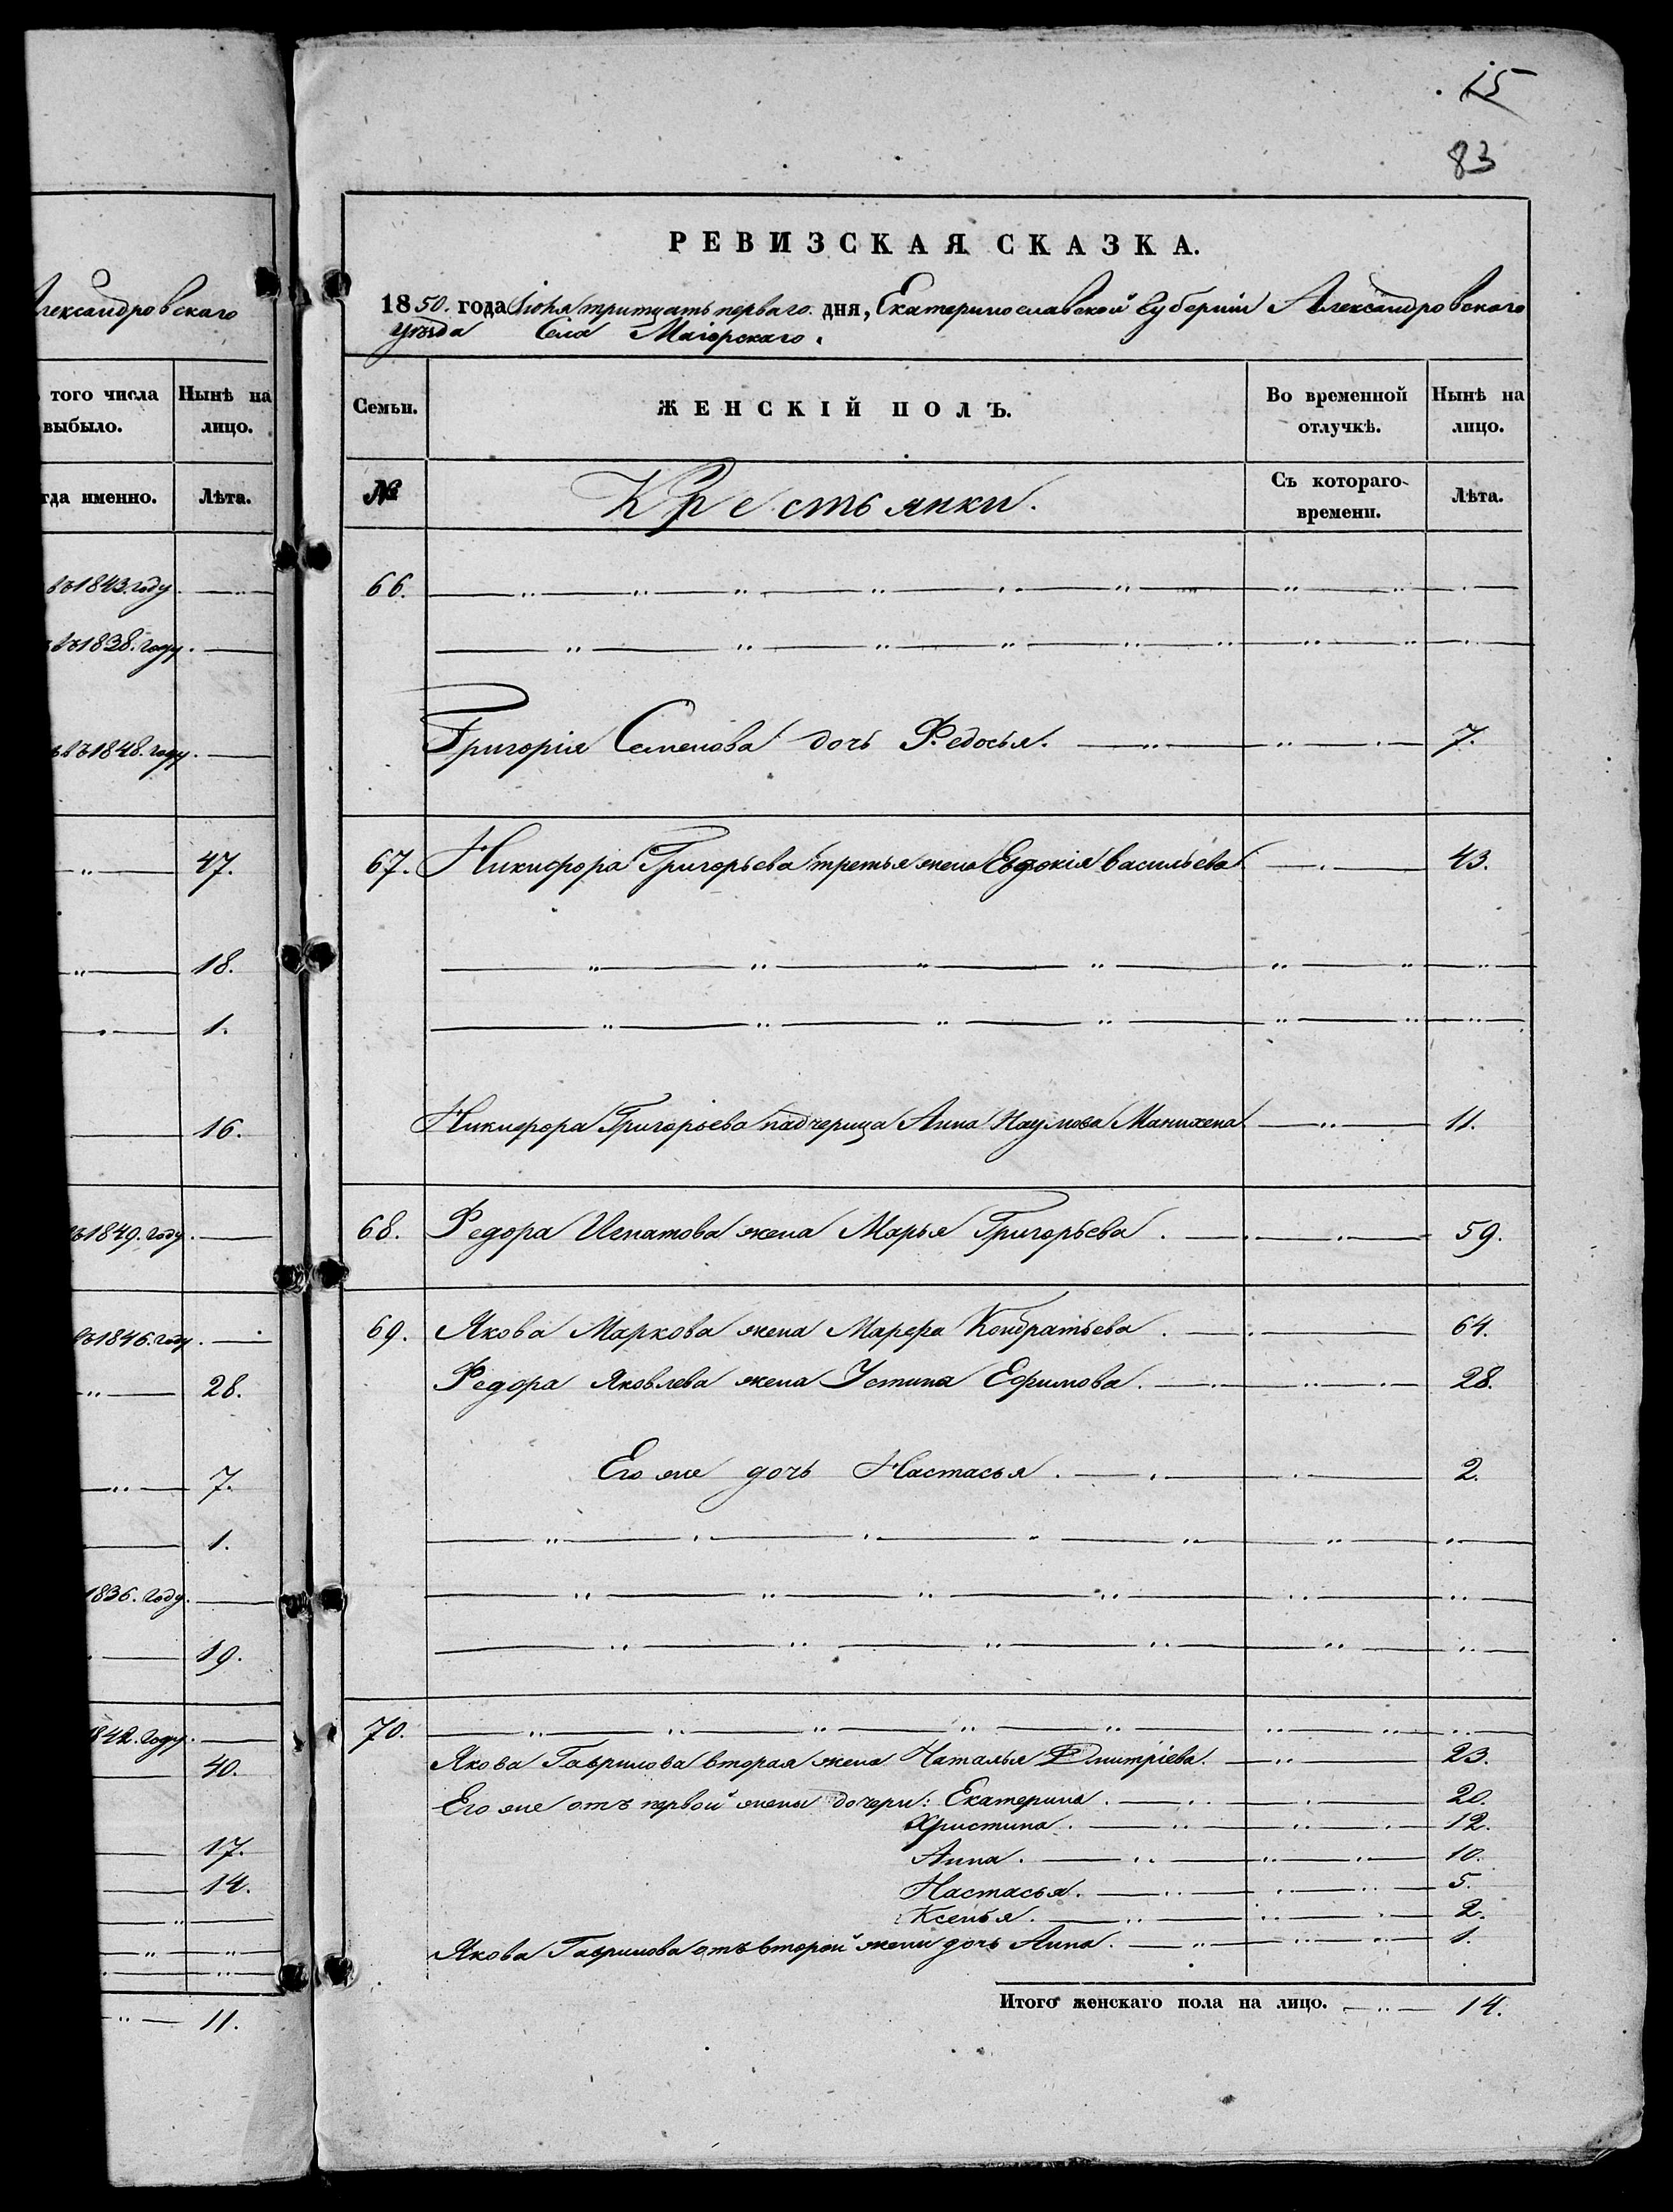 15
83
Александровскаго
того числа
выбыло.
Нынѣ на
лицо.
гда именно.
Лѣта.
въ 1843. году.
въ 1838. году.
въ 1848. году.
47.
18.
1.
16.
1849. году.
1846. году.
28.
7.
1.
1836. году.
19.
1842. году.
40.
17.
14.
11.
РЕВИЗСКАЯ СКАЗКА.
1850. года Іюля тритцать перваго. дня, Екатеринославской Губерніи Александровскаго
уѣзда Села Маіорскаго.
Семьи.
ЖЕНСКІЙ ПОЛЪ.
Во временной
отлучкѣ.
Нынѣ на
лицо.
№
Крестьянки.
Съ котораго
времени.
Лѣта.
66.
Григорія Семенова дочь Федосья. 7.
67. Никифора Григорьева третья жена Евдокія Васильева 43.
Никифора Григорьева падчерица Анна Наумова 11.
68. Федора Игнатова жена Марья Григорьева. 59.
69. Якова Маркова жена Марфа Кондратьева. 64.
Федора Яковлева жена Устина Ефимова. 28.
Его же дочь Настасья. 2.
70.
Якова Гаврилова вторая жена Наталья Дмитріева. 23.
Его же отъ первой жены дочери: Екатерина. 20.
Христина. 12.
Анна. 10.
Настасья. 5.
Ксенья. 2.
Якова Гаврилова отъ второй жены дочь Анна. 1.
Итого женскаго пола на лицо. 14.